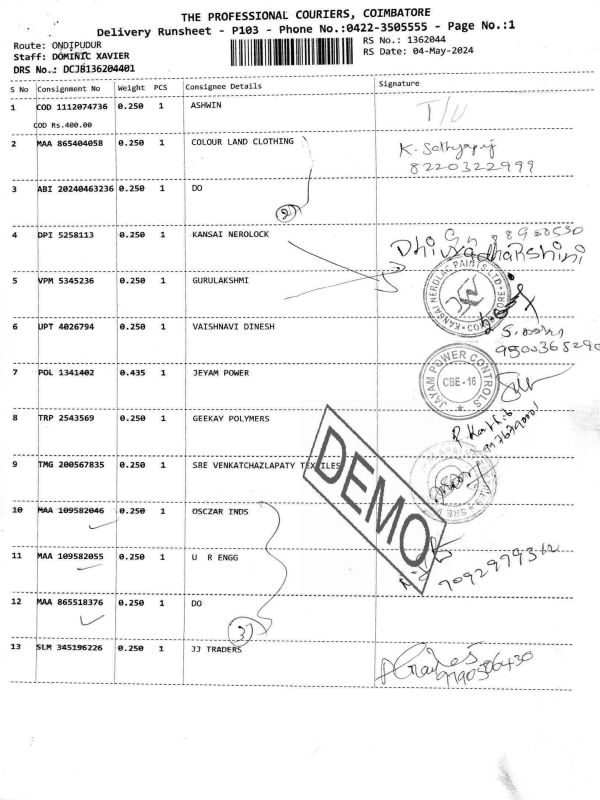 THE PROFESSIONAL COURIERS, COIMBATORE
Delivery Runsheet - P103 - Phone No.:0422-3505555 - Page No.:1
Route: ONDIPUDUR
RS No.: 1362044
Staff: DOMINIC XAVIER
RS Date: 04-May-2024
DRS No.: DCJB136204401
S No Consignment No Weight PCS Consignee Details Signature
1 COD 1112074736 0.250 1 ASHWIN T/U
COD Rs.400.00
2 MAA 865404058 0.250 1 COLOUR LAND CLOTHING
8220322999
3 ABI 20240463236 0.250 1 DO
2
4 DPI 5258113 0.250 1 KANSAI NEROLOCK
Dhivyadharshini
5 VPM 5345236 0.250 1 GURULAKSHMI
KANSAI NEROLAC PAINTS LTD
6 UPT 4026794 0.250 1 VAISHNAVI DINESH
7 POL 1341402 0.435 1 JEYAM POWER
JAYAM POWER CONTROLS
CBE - 16
8 TRP 2543569 0.250 1 GEEKAY POLYMERS
9 TMG 200567835 0.250 1 SRE VENKATCHAZLAPATY TEXTILES
DEMO
10 MAA 109582046 0.250 1 OSCZAR INDS
11 MAA 109582055 0.250 1 U R ENGG
7092979312
12 MAA 865518376 0.250 1 DO
3
13 SLM 345196226 0.250 1 JJ TRADERS
9190506430